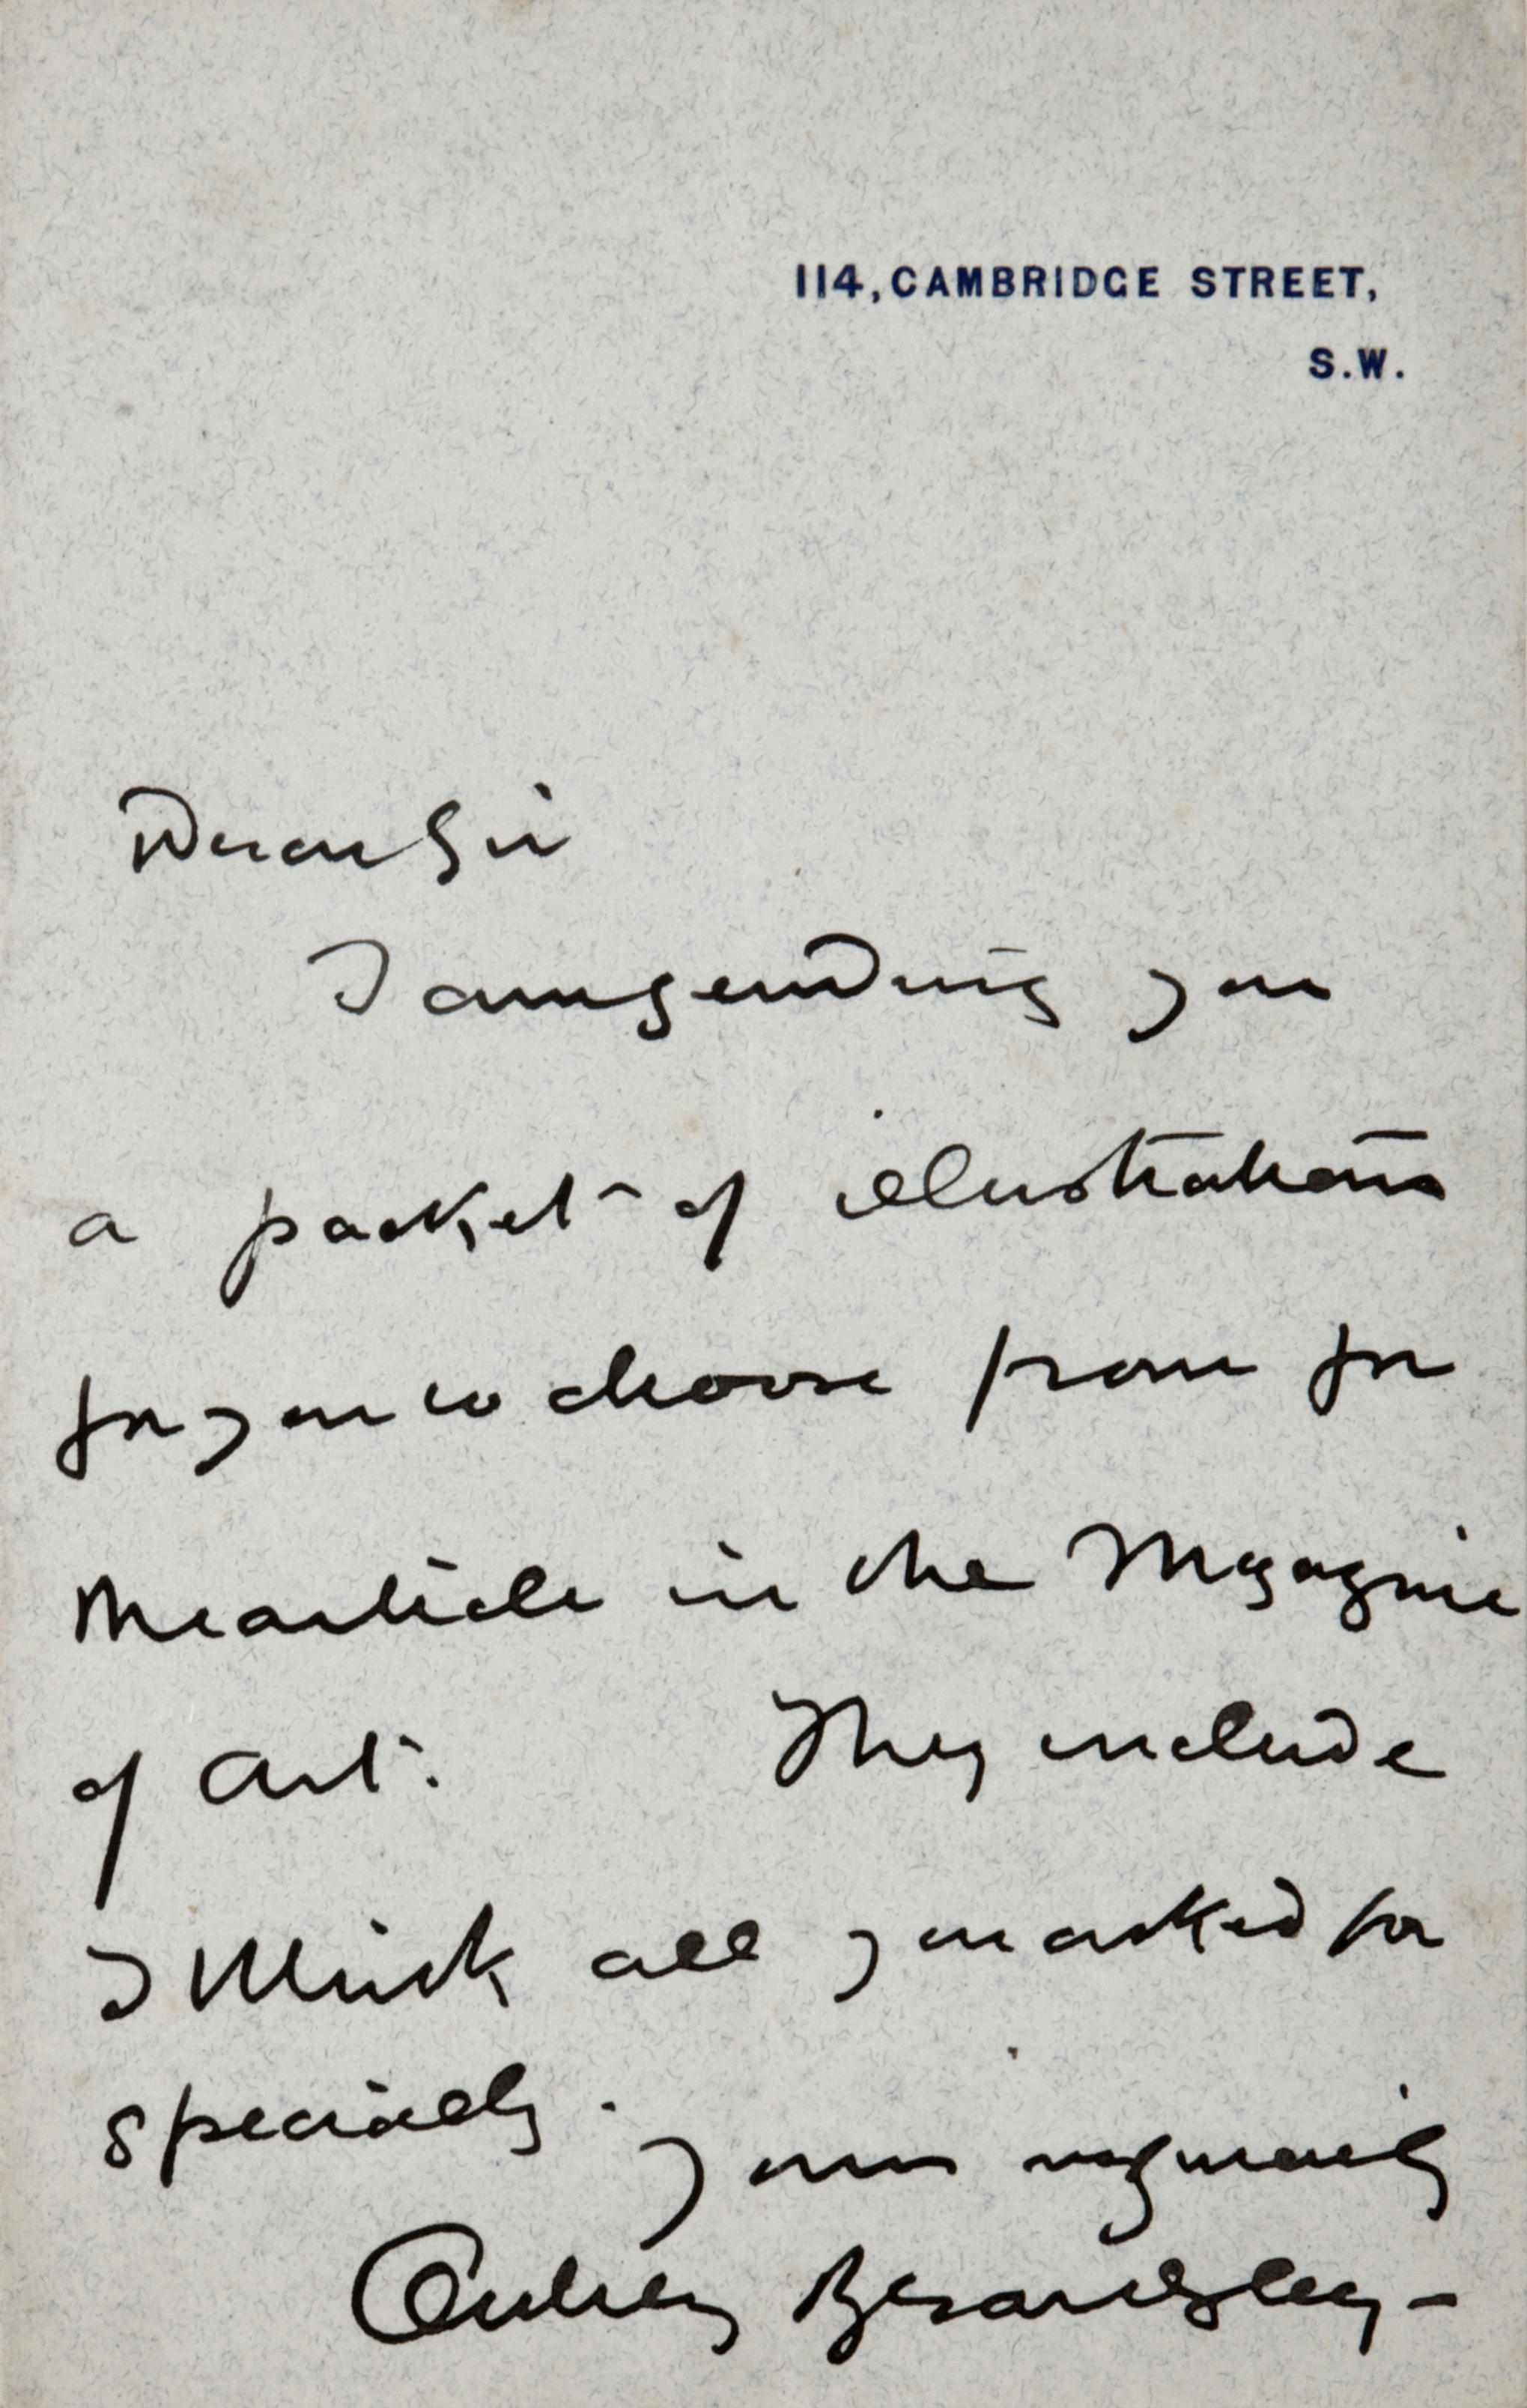 114, CAMBRIDGE STREET,
S.W.
Dear Sir
I am sending you
a packet of illustrations
for you to choose from for
the article in the Magazine
of Art. They include
I think all you asked for
specially.
Yours
Aubrey Beardsley -